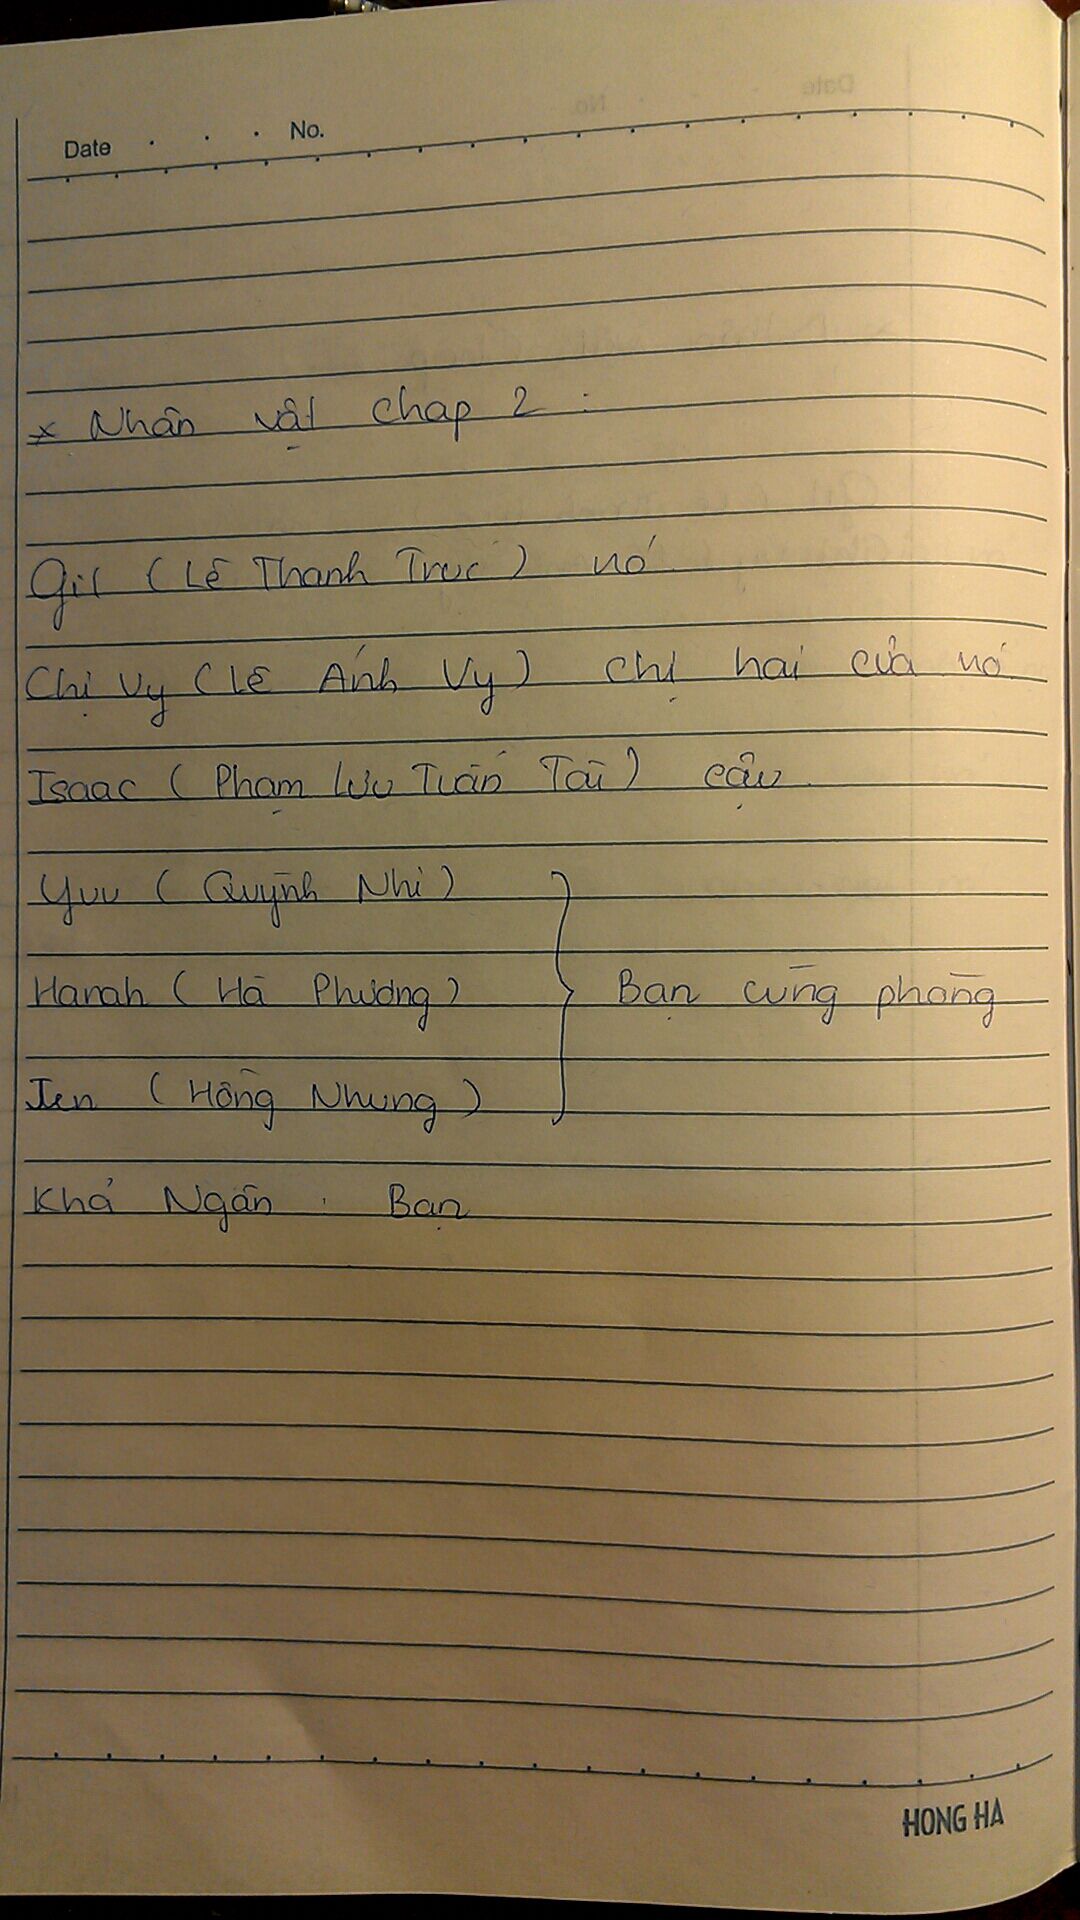 Date . . . No.
* Nhân vật chap 2 :
Gil ( Lê Thanh Trúc ) nó
Chị Vy ( Lê Ánh Vy ) chị hai của nó
Isaac ( Phạm Lưu Tuấn Tài ) cậu
Yuu ( Quỳnh Nhi )
Hanah ( Hà Phương ) } Bạn cùng phòng
Jen ( Hồng Nhung )
Khả Ngân : Bạn
HONG HA